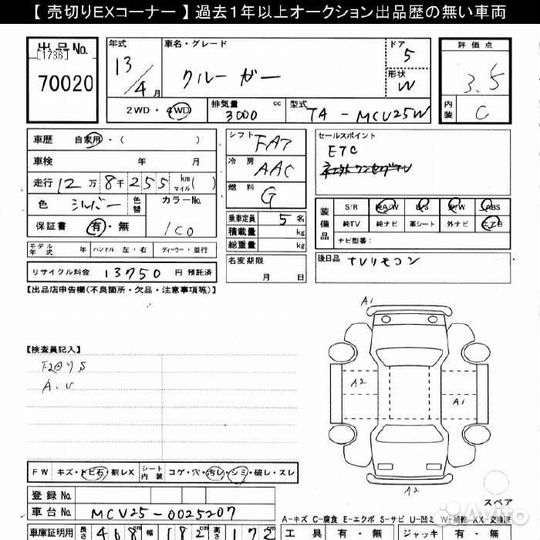 【 売切りEXコーナー 】過去１年以上オークション出品歴の無い車両
出品No. 年式 車名・グレード ドア 評価点
[1736] 13/4月 クルーガー 5 3.5
70020 形状 W
2WD・4WD 排気量 3000 cc 型式 TA-MCU25W 内装 C
車歴 自家用・( ) シフト FAT セールスポイント
車検 年 月 冷房 AAC ETC
走行 12万8千255 km マイル ( ) 燃料 G
色 シルバー 色替 カラーNo. 乗車定員 5 名 装備品 S/R 純A/W P/S P/W ABS
保証書 有・無 1C0 積載量 kg 純TV 純ナビ 革シート 外ナビ エアB
モデル年式 年 ハンドル 左・右 ディーラー・並行 総重量 kg ナビ型番:
リサイクル料金 13750 円 預託済 名変期限 月 日 後日品 TVリモコン
【出品店申告欄(不良箇所・欠品・注意事項等)】
A1
【検査員記入】
A2
A1
FW キズ・トビ石・割レX シート内装 コゲ・穴・汚レ・シミ・破レ・スレ
A2
登録No. スペア
車台No. MCU25-0025207
A-キズ C-腐食 E-エクボ S-サビ U-凹ミ W-補修 XX-交換済
車庫証明用 長さ 468 cm 幅 182 cm 高さ 172 工具 有・無 ジャッキ 有・無
Avito